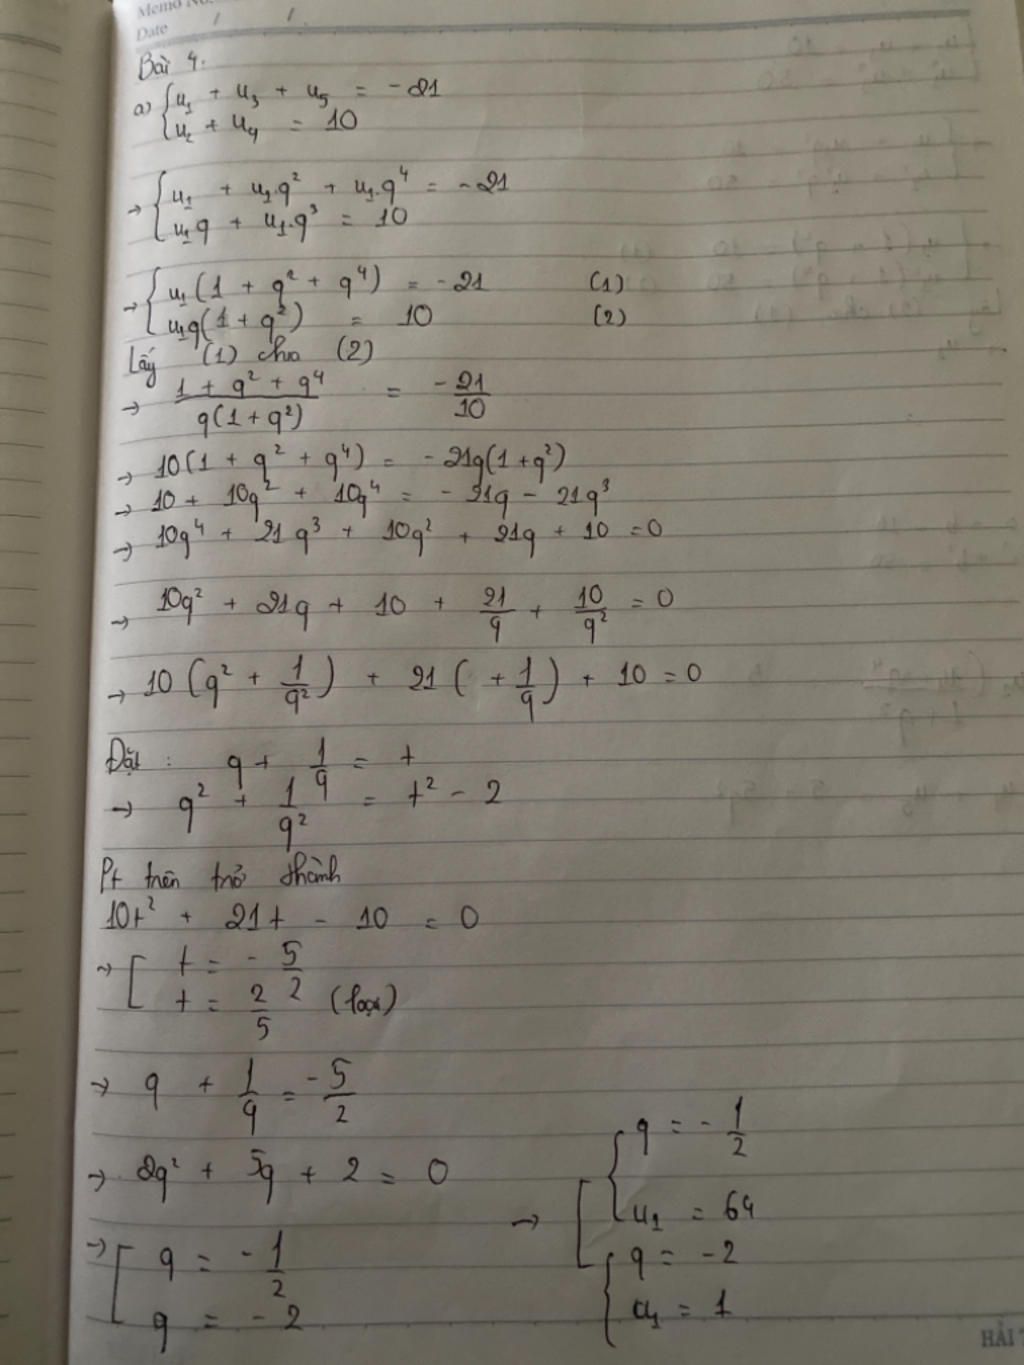 Memo No.
Date / /
Bài 4.
a) { u₁ + u₃ + u₅ = -21
u₂ + u₄ = 10
→ { u₁ + u₁.q² + u₁.q⁴ = -21
u₁q + u₁.q³ = 10
→ { u₁(1 + q² + q⁴) = -21 (1)
u₁q(1 + q²) = 10 (2)
Lấy (1) cho (2)
→ (1 + q² + q⁴)/(q(1 + q²)) = -21/10
→ 10(1 + q² + q⁴) = -21q(1+q²)
→ 10 + 10q² + 10q⁴ = -21q - 21q³
→ 10q⁴ + 21q³ + 10q² + 21q + 10 = 0
→ 10q² + 21q + 10 + 21/q + 10/q² = 0
→ 10(q² + 1/q²) + 21( + 1/q) + 10 = 0
Đặt : q + 1/q = t
→ q² + 1/q² = t² - 2
Pt trên trở thành
10t² + 21t - 10 = 0
→ [ t = -5/2
t = 2/5 (loại)
→ q + 1/q = -5/2
→ 2q² + 5q + 2 = 0
→ [ q = -1/2
q = -2
→ [ { q = -1/2
u₁ = 64
{ q = -2
u₁ = 1
HẢI